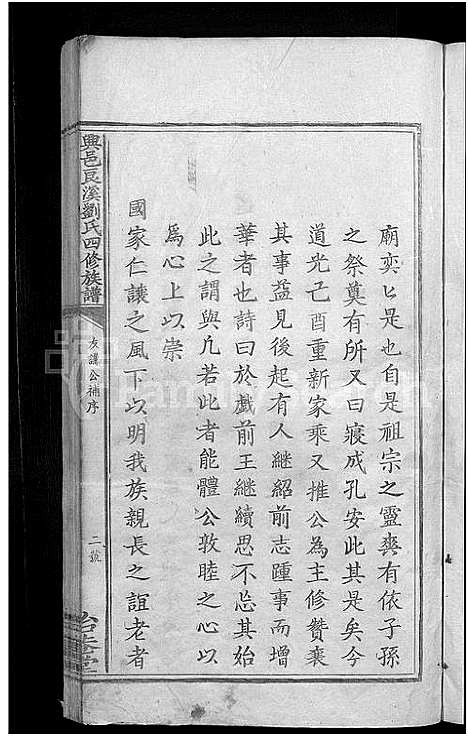 廟奕匕是也自是祖宗之靈爽有依子孫
之祭奠有所又曰寢成孔安此其是矣今
道光己酉重新家乘又推公為主修贊襄
其事益見後起有人繼紹前志踵事而增
華者也詩曰於戲前王繼續思不忘其始
此之謂與凡若此者能體公敦睦之心以
為心上以崇
國家仁讓之風下以明我族親長之誼老者
興邑艮溪劉氏四修族譜
友讓公補序
二號